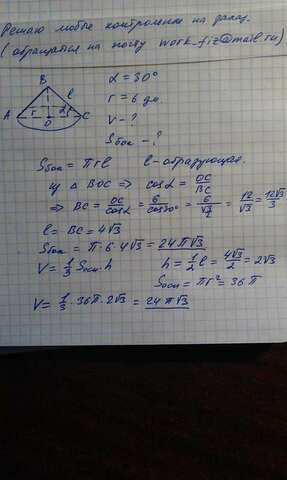 Решаю любые контрольные на заказ.
(обращатся на почту work_fiz@mail.ru)
B
l
r
α
A
O
C
α = 30°
r = 6 дм.
V - ?
Sбок - ?
Sбок = πrl    l - образующая.
из △ BOC => cosα = OC/BC
=> BC = OC/cosα = 6/cos30° = 6/√ = 12/√3 = 12√3/3
l = BC = 4√3
Sбок = π·6·4√3 = 24π√3
V = 1/3 Sосн·h    h = 1/2 l = 4√3/2 = 2√3
Sосн = πr² = 36π
V = 1/3·36π·2√3 = 24π√3